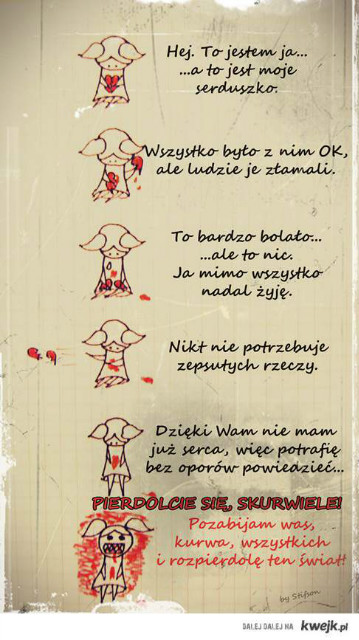 Hej. To jestem ja...
...a to jest moje
serduszko.
Wszystko było z nim OK,
ale ludzie je złamali.
To bardzo bolało...
...ale to nic.
Ja mimo wszystko
nadal żyję.
Nikt nie potrzebuje
zepsutych rzeczy.
Dzięki Wam nie mam
już serca, więc potrafię
bez oporów powiedzieć...
PIERDOLCIE SIĘ, SKURWIELE!
Pozabijam was,
kurwa, wszystkich
i rozpierdolę ten świat!
by Stifson
DALEJ DALEJ NA kwejk.pl